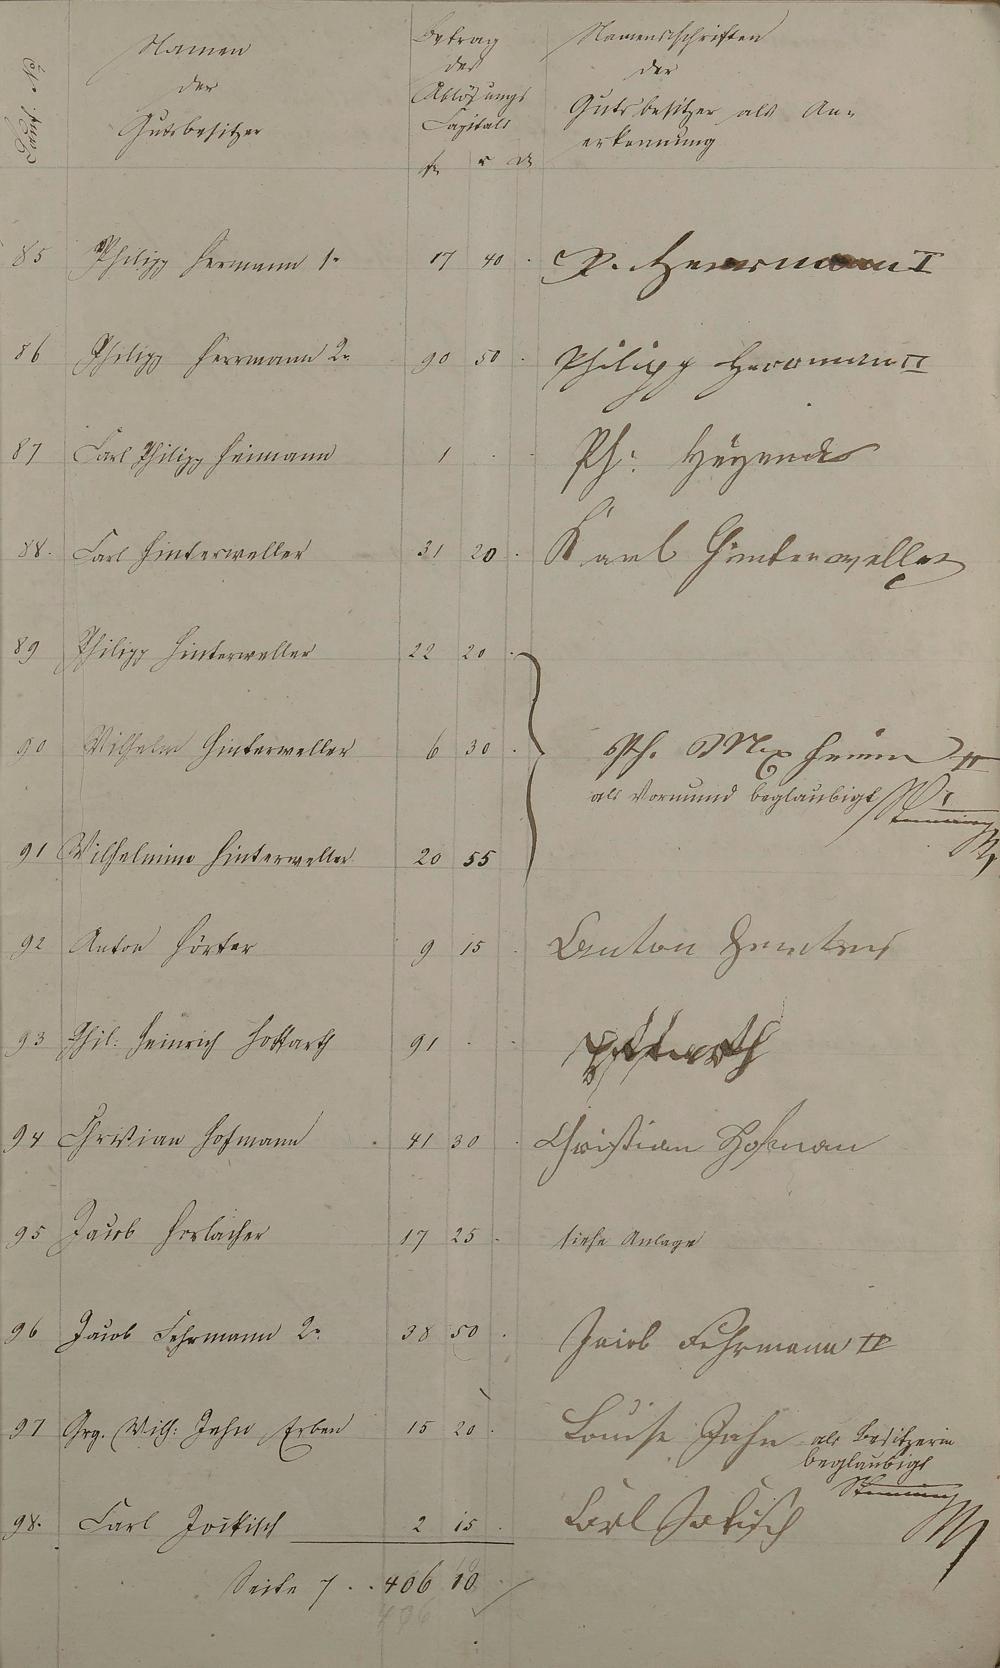 Lauf. No
Namen
der
Gutsbesitzer
Betrag
des
Ablösungs
Capitals
fl x
Namensschriften
der
Gutsbesitzer als An=
erkennung
85 Philipp Hermann 1r 17 40 . P. Herrmann I
86 Philipp Herrmann 2r 90 50 . Philipp Herrmann II
87 Carl Philipp Heimann 1 . . Ph:
88. Carl Hinterweller 31 20 . Karl Hinterweller
89 Philipp Hinterweller 22 20 .
90 Wilhelm Hinterweller 6 30 . Ph.
als Vormund beglaubigt
91 Wilhelmine Hinterweller 20 55
92 Anton Hörter 9 15 . Anton
93 Phil: Heinrich Hottarth 91 . .
94 Christian Hofmann . 41 30 . Christian Hofman
95 Jacob Horlacher 17 25 . siehe Anlage
96 Jacob Fehrmann 2r 38 50 . Jacob Fehrmann II
97 Grg. Wilh: Jahn Erben 15 20 . Louise Jahn als Besitzerin
beglaubigt
98. Carl Jockisch 2 15 . Carl Jokisch
Seite 7 . . 406 10
406